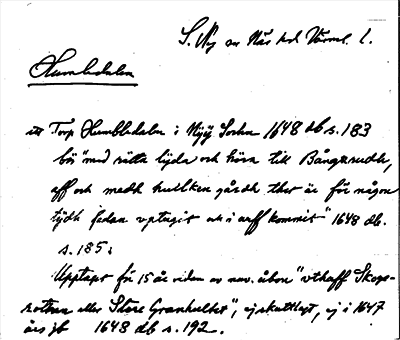 S. Ny sn Näs hd Värml. l.
Humbledalen
ett Torp Humbledalen i Nyy Sochn 1648 db s. 183
bör "med rätta lyda och höra till Bångsrudh,
aff och medh huilken gårdh ther är för någon
tijdh sedan vptagit och i arff kommit" 1648 db.
s. 185;
Upptaget för 15 år sedan av nuv. åbon "vthaff Skogs-
rothen eller Store Granhultet", ej skattlagt, ej i 1647
års jb 1648 db s. 192.